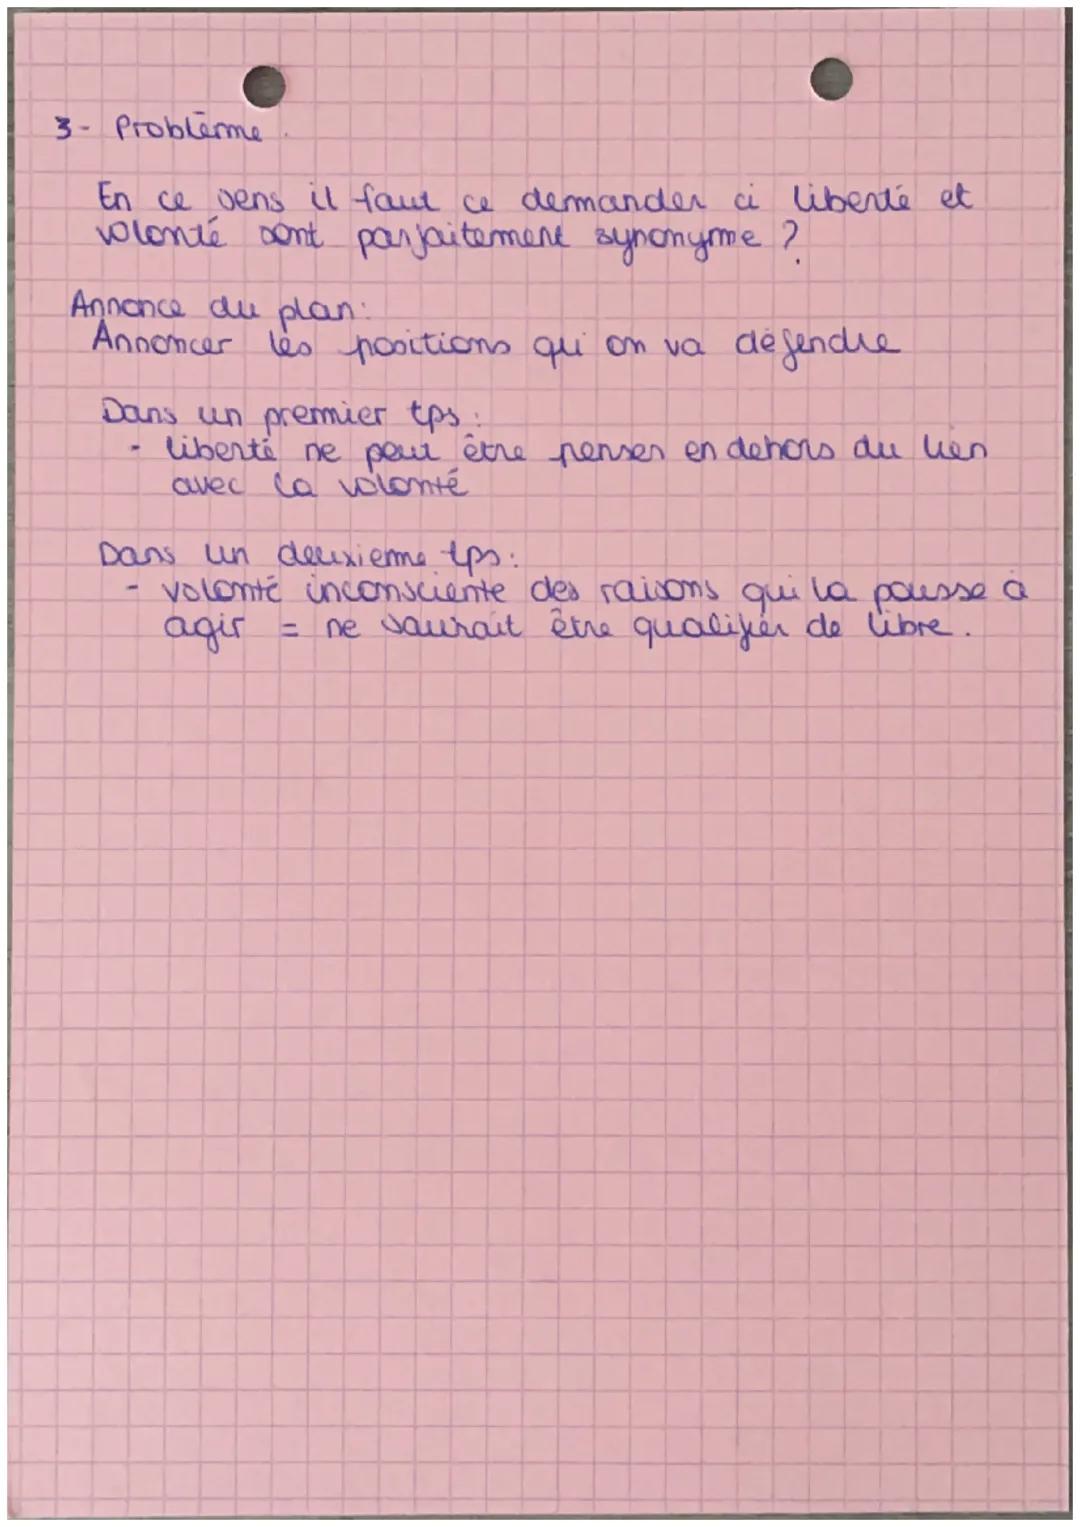 3- Problème.
En ce sens il faut ce demander ci liberté et
volonté sont parfaitement synonyme ?
Annonce du plan:
Annoncer les positions qui on va défendre
Dans un premier tps :
- liberté ne peut être penser en dehors du lien
avec la volonté
Dans un deuxieme tps:
- volonté inconsciente des raisons qui la pousse à
agir = ne saurait être qualifier de libre.